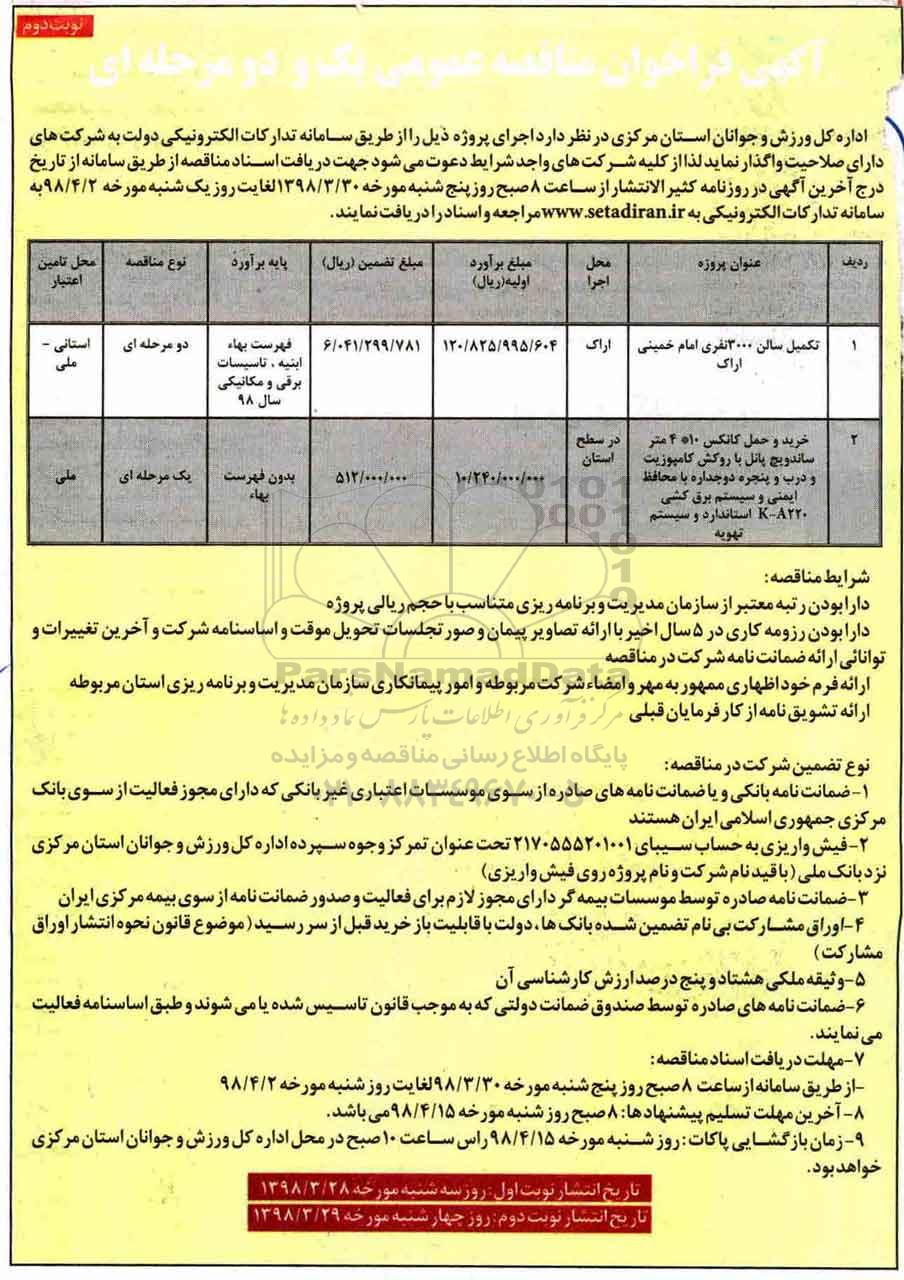 نوبت دوم
آگهی فراخوان مناقصه عمومی یک و دو مرحله ای
اداره کل ورزش و جوانان استان مرکزی در نظر دارد اجرای پروژه ذیل را از طریق سامانه تدارکات الکترونیکی دولت به شرکت های
دارای صلاحیت واگذار نماید لذا از کلیه شرکت های واجد شرایط دعوت می شود جهت دریافت اسناد مناقصه از طریق سامانه از تاریخ
درج آخرین آگهی در روزنامه کثیر الانتشار از ساعت ۸ صبح روز پنج شنبه مورخه ۱۳۹۸/۳/۳۰ لغایت روز یک شنبه مورخه ۹۸/۴/۲ به
سامانه تدارکات الکترونیکی به www.setadiran.ir مراجعه و اسناد را دریافت نمایند.
ردیف عنوان پروژه محل اجرا مبلغ برآورد اولیه(ریال) مبلغ تضمین (ریال) پایه برآورد نوع مناقصه محل تامین اعتبار
۱ تکمیل سالن ۳۰۰۰نفری امام خمینی اراک اراک ۱۲۰/۸۲۵/۹۹۵/۶۰۴ ۶/۰۴۱/۲۹۹/۷۸۱ فهرست بهاء ابنیه ، تاسیسات برقی و مکانیکی سال ۹۸ دو مرحله ای استانی - ملی
۲ خرید و حمل کانکس ۱۰* ۴ متر ساندویچ پانل با روکش کامپوزیت و درب و پنجره دوجداره با محافظ ایمنی و سیستم برق کشی K-A۲۲۰ استاندارد و سیستم تهویه در سطح استان ۱۰/۲۴۰/۰۰۰/۰۰۰ ۵۱۲/۰۰۰/۰۰۰ بدون فهرست بهاء یک مرحله ای ملی
شرایط مناقصه:
دارا بودن رتبه معتبر از سازمان مدیریت و برنامه ریزی متناسب با حجم ریالی پروژه
دارا بودن رزومه کاری در ۵ سال اخیر با ارائه تصاویر پیمان و صورتجلسات تحویل موقت و اساسنامه شرکت و آخرین تغییرات و
توانائی ارائه ضمانت نامه شرکت در مناقصه
ارائه فرم خود اظهاری ممهور به مهر و امضاء شرکت مربوطه و امور پیمانکاری سازمان مدیریت و برنامه ریزی استان مربوطه
ارائه تشویق نامه از کارفرمایان قبلی
ParsNamadData
مرکز فرآوری اطلاعات پارس نماد داده ها
پایگاه اطلاع رسانی مناقصه و مزایده
نوع تضمین شرکت در مناقصه:
۱- ضمانت نامه بانکی و یا ضمانت نامه های صادره از سوی موسسات اعتباری غیر بانکی که دارای مجوز فعالیت از سوی بانک
مرکزی جمهوری اسلامی ایران هستند
۲- فیش واریزی به حساب سیبای ۲۱۷۰۵۵۵۲۰۱۰۰۱ تحت عنوان تمرکز وجوه سپرده اداره کل ورزش و جوانان استان مرکزی
نزد بانک ملی (با قید نام شرکت و نام پروژه روی فیش واریزی)
۳- ضمانت نامه صادره توسط موسسات بیمه گر دارای مجوز لازم برای فعالیت و صدور ضمانت نامه از سوی بیمه مرکزی ایران
۴- اوراق مشارکت بی نام تضمین شده بانک ها، دولت با قابلیت باز خرید قبل از سر رسید (موضوع قانون نحوه انتشار اوراق
مشارکت)
۵- وثیقه ملکی هشتاد و پنج درصد ارزش کارشناسی آن
۶- ضمانت نامه های صادره توسط صندوق ضمانت دولتی که به موجب قانون تاسیس شده یا می شوند و طبق اساسنامه فعالیت
می نمایند.
۷- مهلت دریافت اسناد مناقصه:
-از طریق سامانه از ساعت ۸ صبح روز پنج شنبه مورخه ۹۸/۳/۳۰ لغایت روز شنبه مورخه ۹۸/۴/۲
۸- آخرین مهلت تسلیم پیشنهادها: ۸ صبح روز شنبه مورخه ۹۸/۴/۱۵ می باشد.
۹- زمان بازگشایی پاکات: روز شنبه مورخه ۹۸/۴/۱۵ راس ساعت ۱۰ صبح در محل اداره کل ورزش و جوانان استان مرکزی
خواهد بود.
تاریخ انتشار نوبت اول: روز سه شنبه مورخه ۱۳۹۸/۳/۲۸
تاریخ انتشار نوبت دوم: روز چهارشنبه مورخه ۱۳۹۸/۳/۲۹